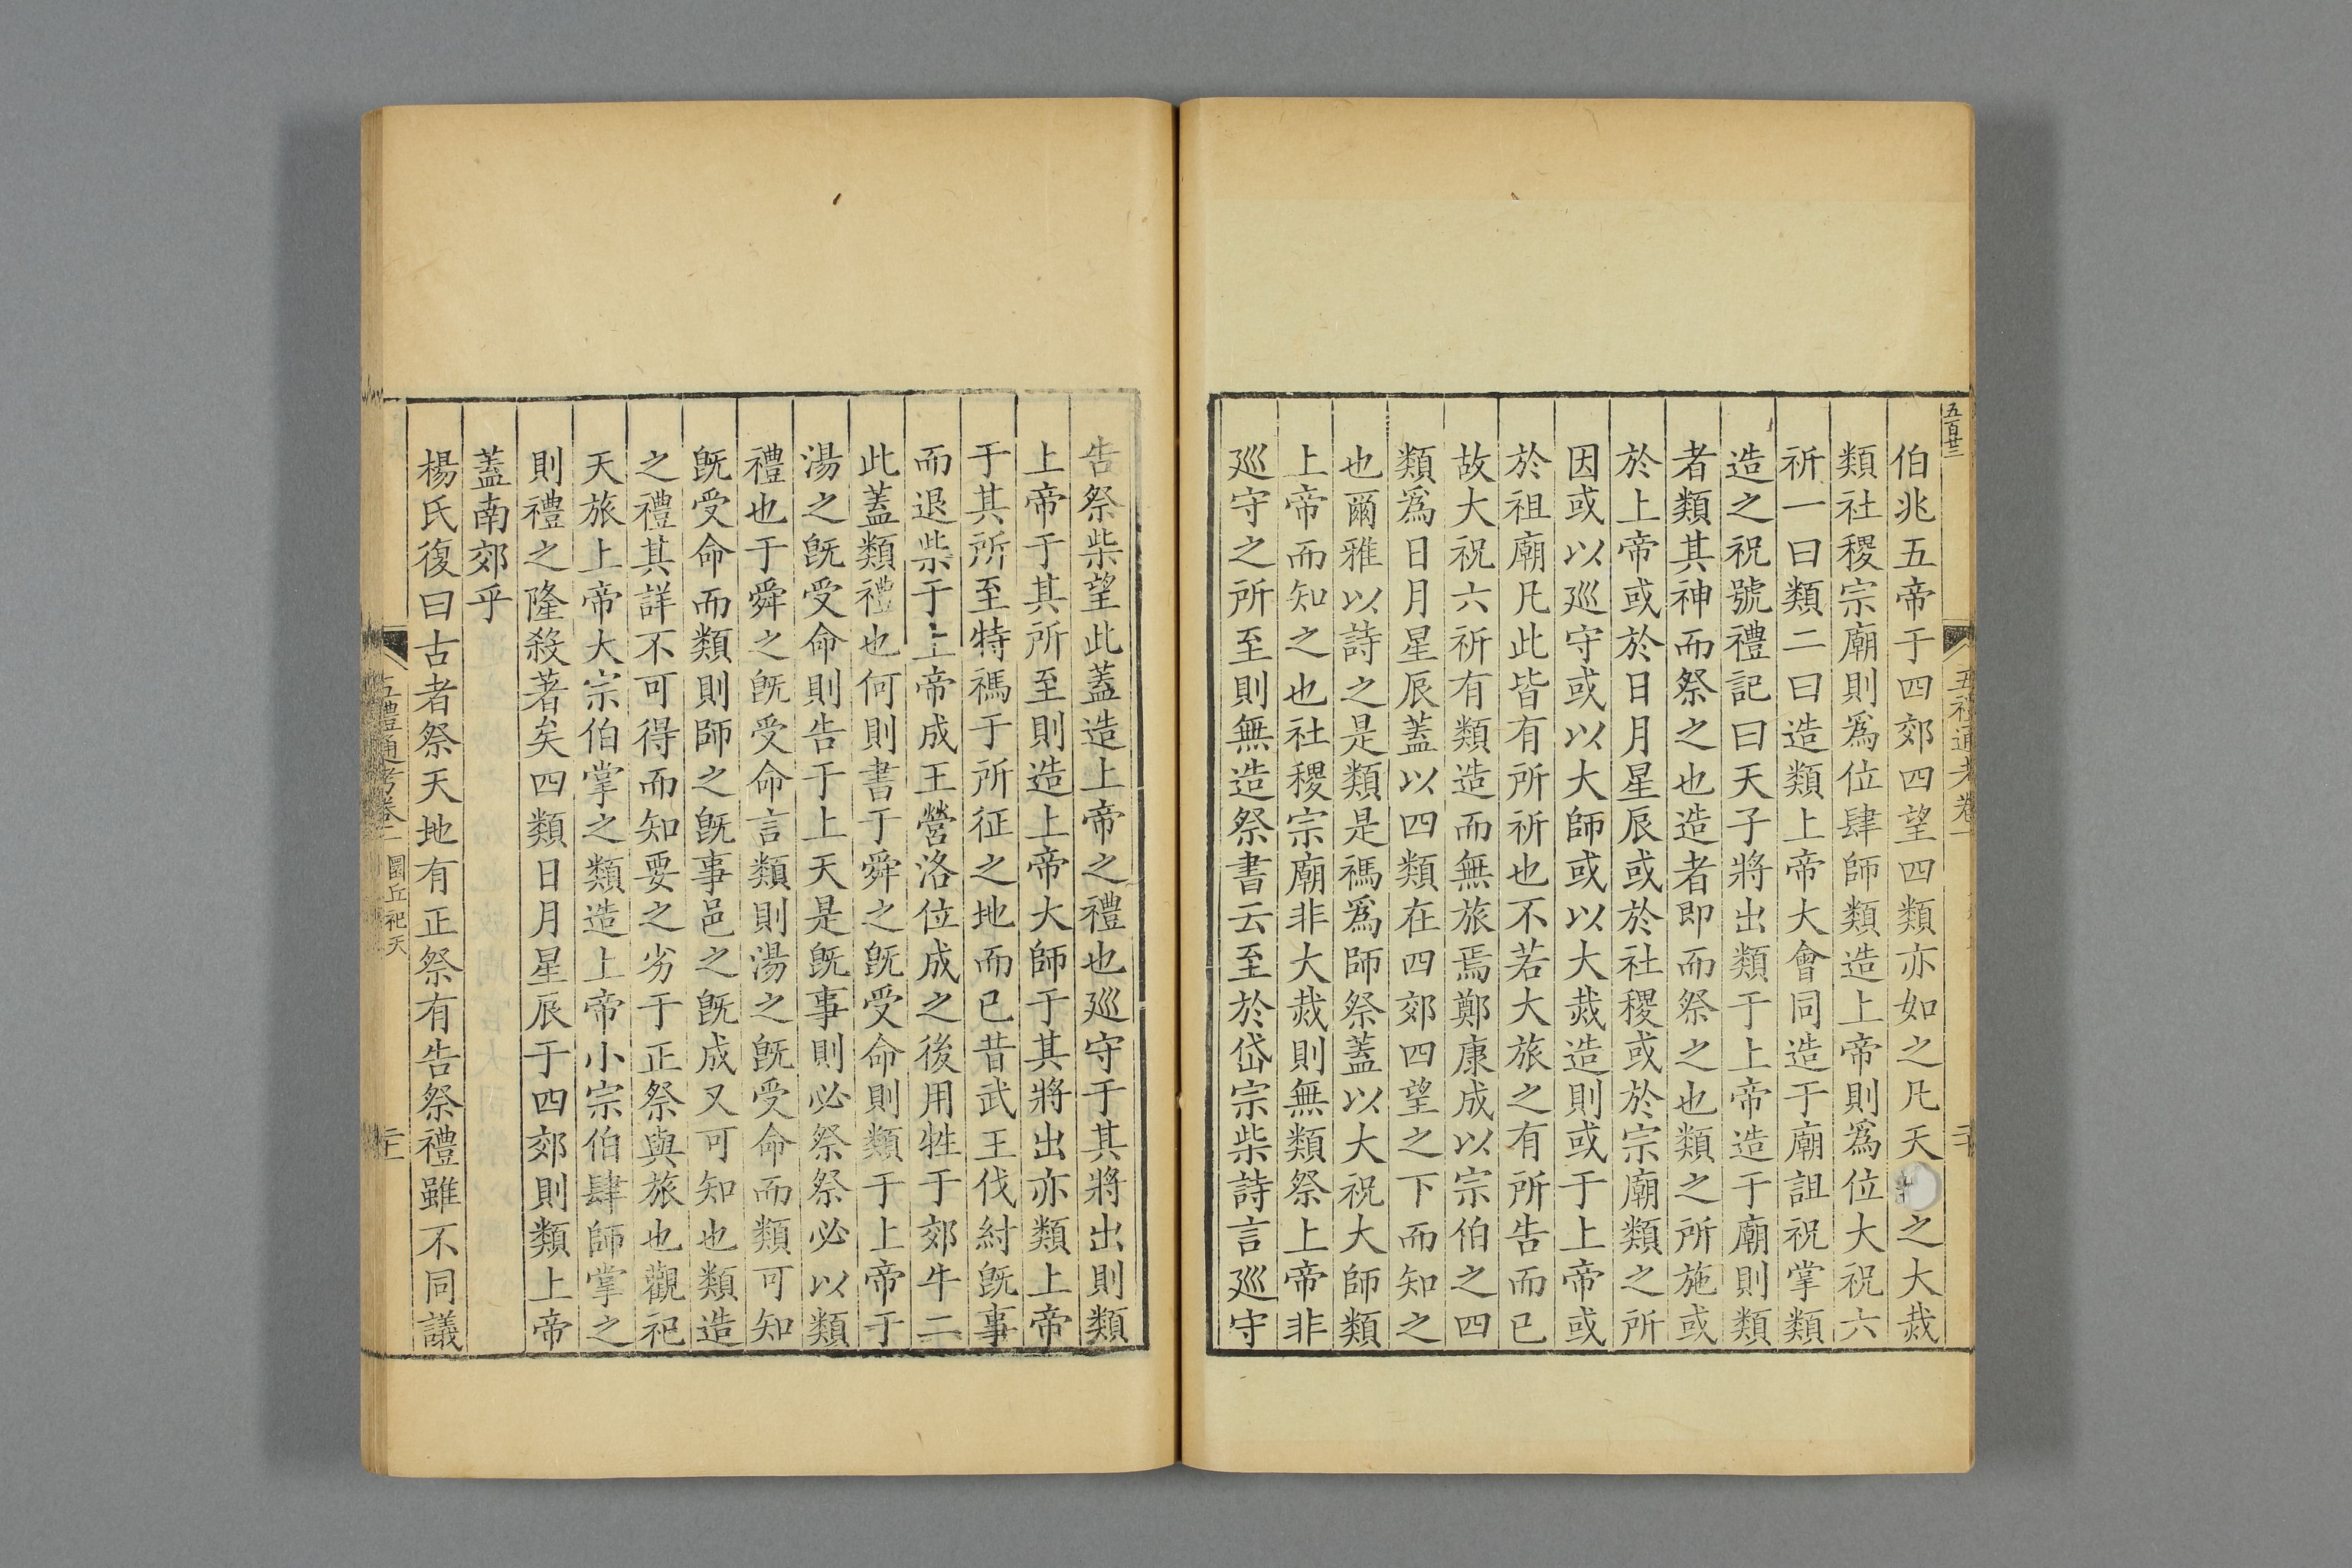 五百廿三
五禮通考卷一
二十
伯兆五帝于四郊四望四類亦如之凡天之大烖
類社稷宗廟則爲位肆師類造上帝則爲位大祝六
祈一曰類二曰造類上帝大會同造于廟詛祝掌類
造之祝號禮記曰天子將出類于上帝造于廟則類
者類其神而祭之也造者即而祭之也類之所施或
於上帝或於日月星辰或於社稷或於宗廟類之所
因或以巡守或以大師或以大烖造則或于上帝或
於祖廟凡此皆有所祈也不若大旅之有所告而已
故大祝六祈有類造而無旅焉鄭康成以宗伯之四
類爲日月星辰蓋以四類在四郊四望之下而知之
也爾雅以詩之是類是禡爲師祭蓋以大祝大師類
上帝而知之也社稷宗廟非大烖則無類祭上帝非
巡守之所至則無造祭書云至於岱宗柴詩言巡守
告祭柴望此蓋造上帝之禮也巡守于其將出則類
上帝于其所至則造上帝大師于其將出亦類上帝
于其所至特禡于所征之地而已昔武王伐紂旣事
而退柴于上帝成王營洛位成之後用牲于郊牛二
此蓋類禮也何則書于舜之旣受命則類于上帝于
湯之旣受命則告于上天是旣事則必祭祭必以類
禮也于舜之旣受命言類則湯之旣受命而類可知
旣受命而類則師之旣事邑之旣成又可知也類造
之禮其詳不可得而知要之劣于正祭與旅也觀祀
天旅上帝大宗伯掌之類造上帝小宗伯肆師掌之
則禮之隆殺著矣四類日月星辰于四郊則類上帝
蓋南郊乎
楊氏復曰古者祭天地有正祭有告祭禮雖不同議
五禮通考卷一
圜丘祀天